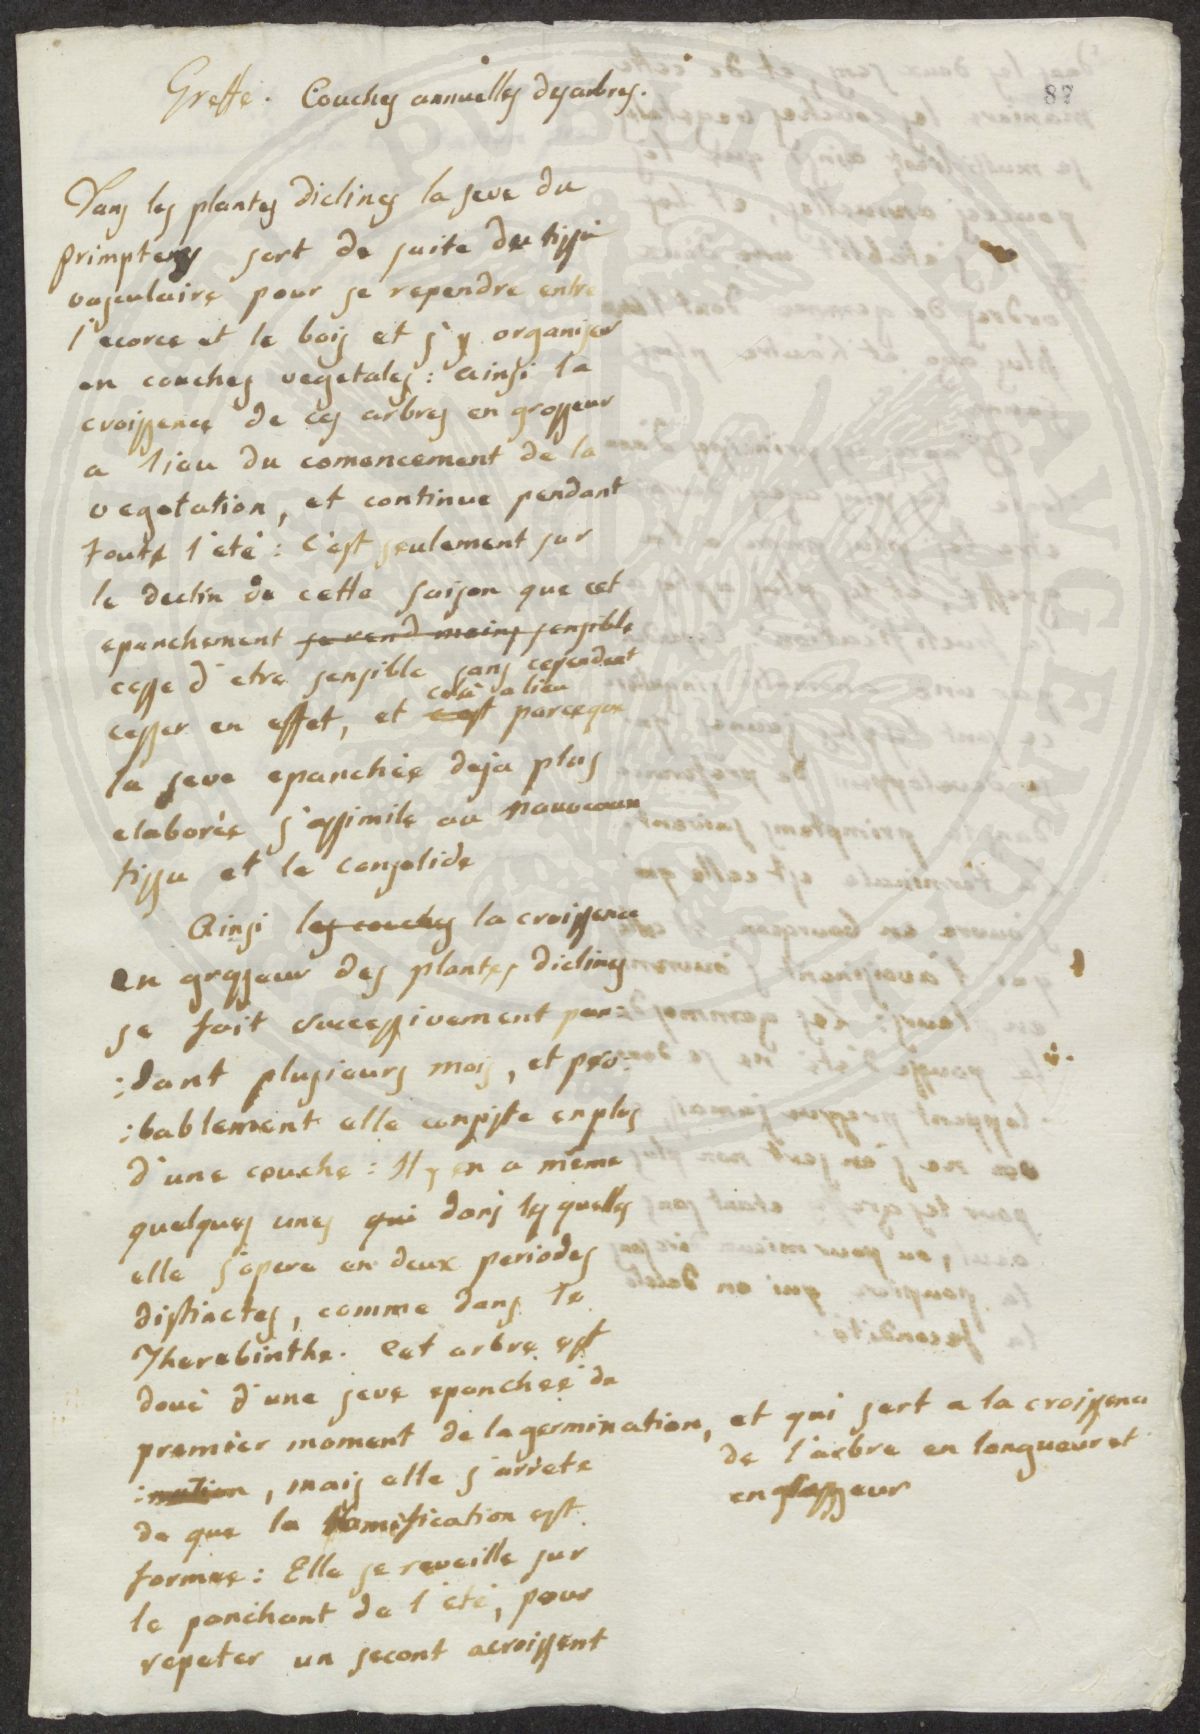 Greffe. Couches annuelles des arbres.
87
Dans les plantes diclines la seve du
primptems sort de suite du tissu
vasculaire pour se rependre entre
l'ecorce et le bois et s'y organiser
en couches vegetales: ainsi la
croissence de ces arbres en grosseur
a lieu du comencement de la
vegetation, et continue pendant
toute l'eté: c'est seulement sur
le declin de cette saison que cet
epanchement se rend moins sensible
cesse d'etre sensible sans cependent
cela a lieu
cesser en effet, et c'est parceque
la seve epanchée deja plus
elaborée s'assimile au nouveau
tissu et le consolide
Ainsi les couches la croissence
en grosseur des plantes diclines
se fait successivement pen:
:dant plusieurs mois, et pro:
:bablement elle consiste en plus
d'une couche: Il y en a même
quelques unes qui dans lesquelles
elle s'opere en deux periodes
distinctes, comme dans le
Therebinthe. Cet arbre est
doué d'une seve epanchée du
premier moment de la germination, et qui sert a la croissence
de l'arbre en longueur et
en grosseur
:nation, mais elle s'arrete
de que la ramification est
formee: Elle se reveille sur
le panchant de l'eté, pour
repeter un secont acroissent